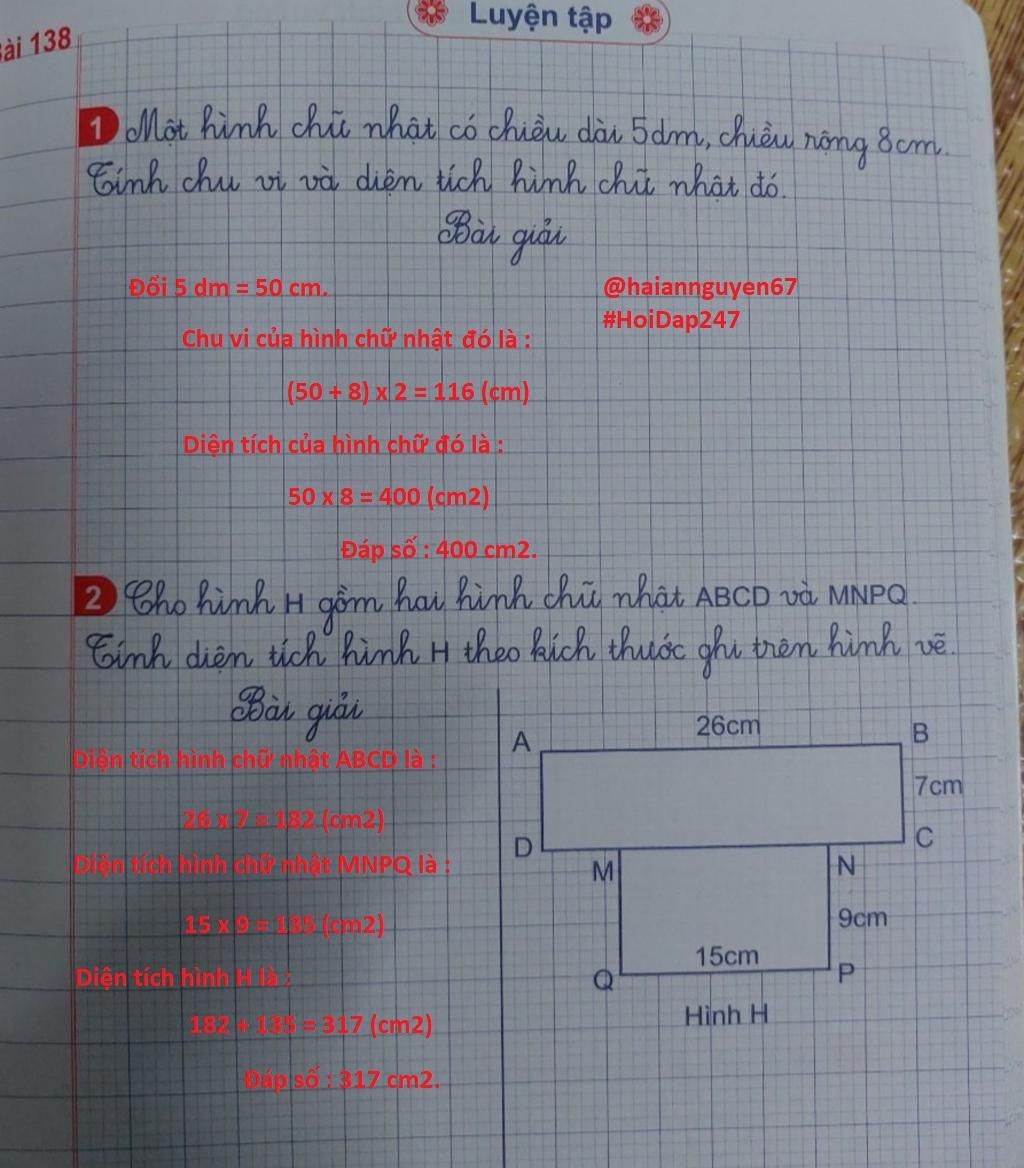 Luyện tập
ài 138
1 Một hình chữ nhật có chiều dài 5dm, chiều rộng 8cm.
Tính chu vi và diện tích hình chữ nhật đó.
Bài giải
Đổi 5 dm = 50 cm.
@haiannguyen67
#HoiDap247
Chu vi của hình chữ nhật đó là :
(50 + 8) x 2 = 116 (cm)
Diện tích của hình chữ đó là :
50 x 8 = 400 (cm2)
Đáp số : 400 cm2.
2 Cho hình H gồm hai hình chữ nhật ABCD và MNPQ.
Tính diện tích hình H theo kích thước ghi trên hình vẽ.
Bài giải
Diện tích hình chữ nhật ABCD là :
26 x 7 = 182 (cm2)
Diện tích hình chữ nhật MNPQ là :
15 x 9 = 135 (cm2)
Diện tích hình H là :
182 + 135 = 317 (cm2)
Đáp số : 317 cm2.
26cm
A
B
7cm
D
C
M
N
9cm
15cm
Q
P
Hình H